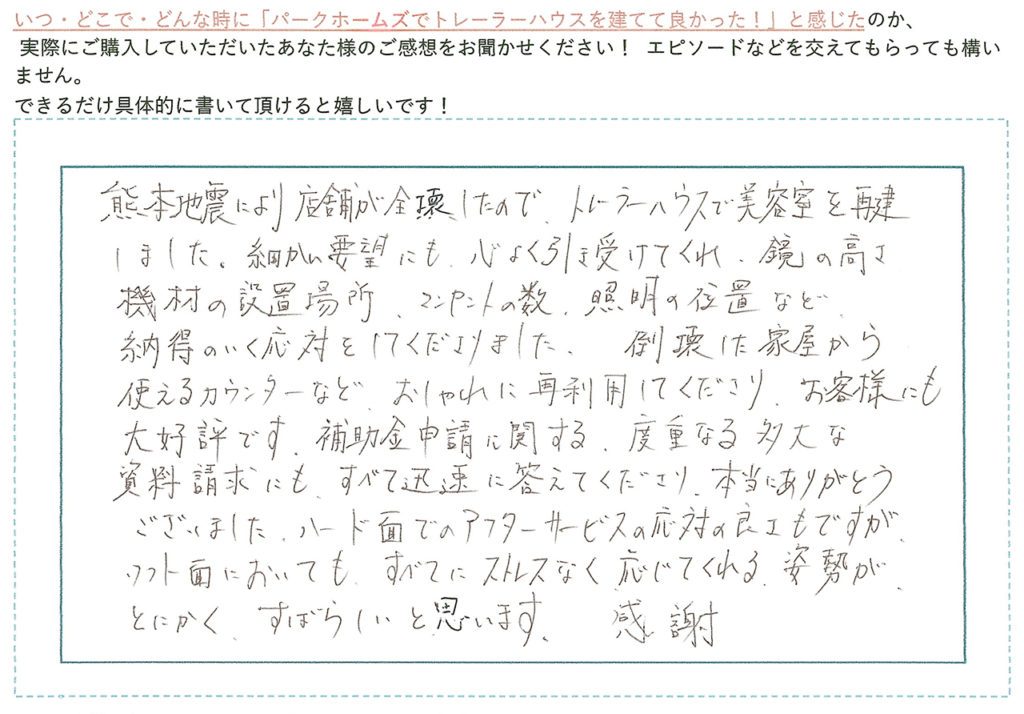 いつ・どこで・どんな時に「パークホームズでトレーラーハウスを建てて良かった！」と感じたのか、
実際にご購入していただいたあなた様のご感想をお聞かせください！ エピソードなどを交えてもらっても構い
ません。
できるだけ具体的に書いて頂けると嬉しいです！
熊本地震により店舗が全壊したので、トレーラーハウスで美容室を再建
しました。細かい要望にも、心よく引き受けてくれ、鏡の高さ
機材の設置場所、コンセントの数、照明の位置など、
納得のいく応対をしてくださりました。 倒壊した家屋から
使えるカウンターなど、おしゃれに再利用してくださり、お客様にも
大好評です。補助金申請に関する、度重なる多大な
資料請求にも、すべて迅速に答えてくださり、本当にありがとう
ございました。ハード面でのアフターサービスの応対の良さもですが、
ソフト面においても、すべてにストレスなく応じてくれる、姿勢が、
とにかく、すばらしいと思います。 感謝